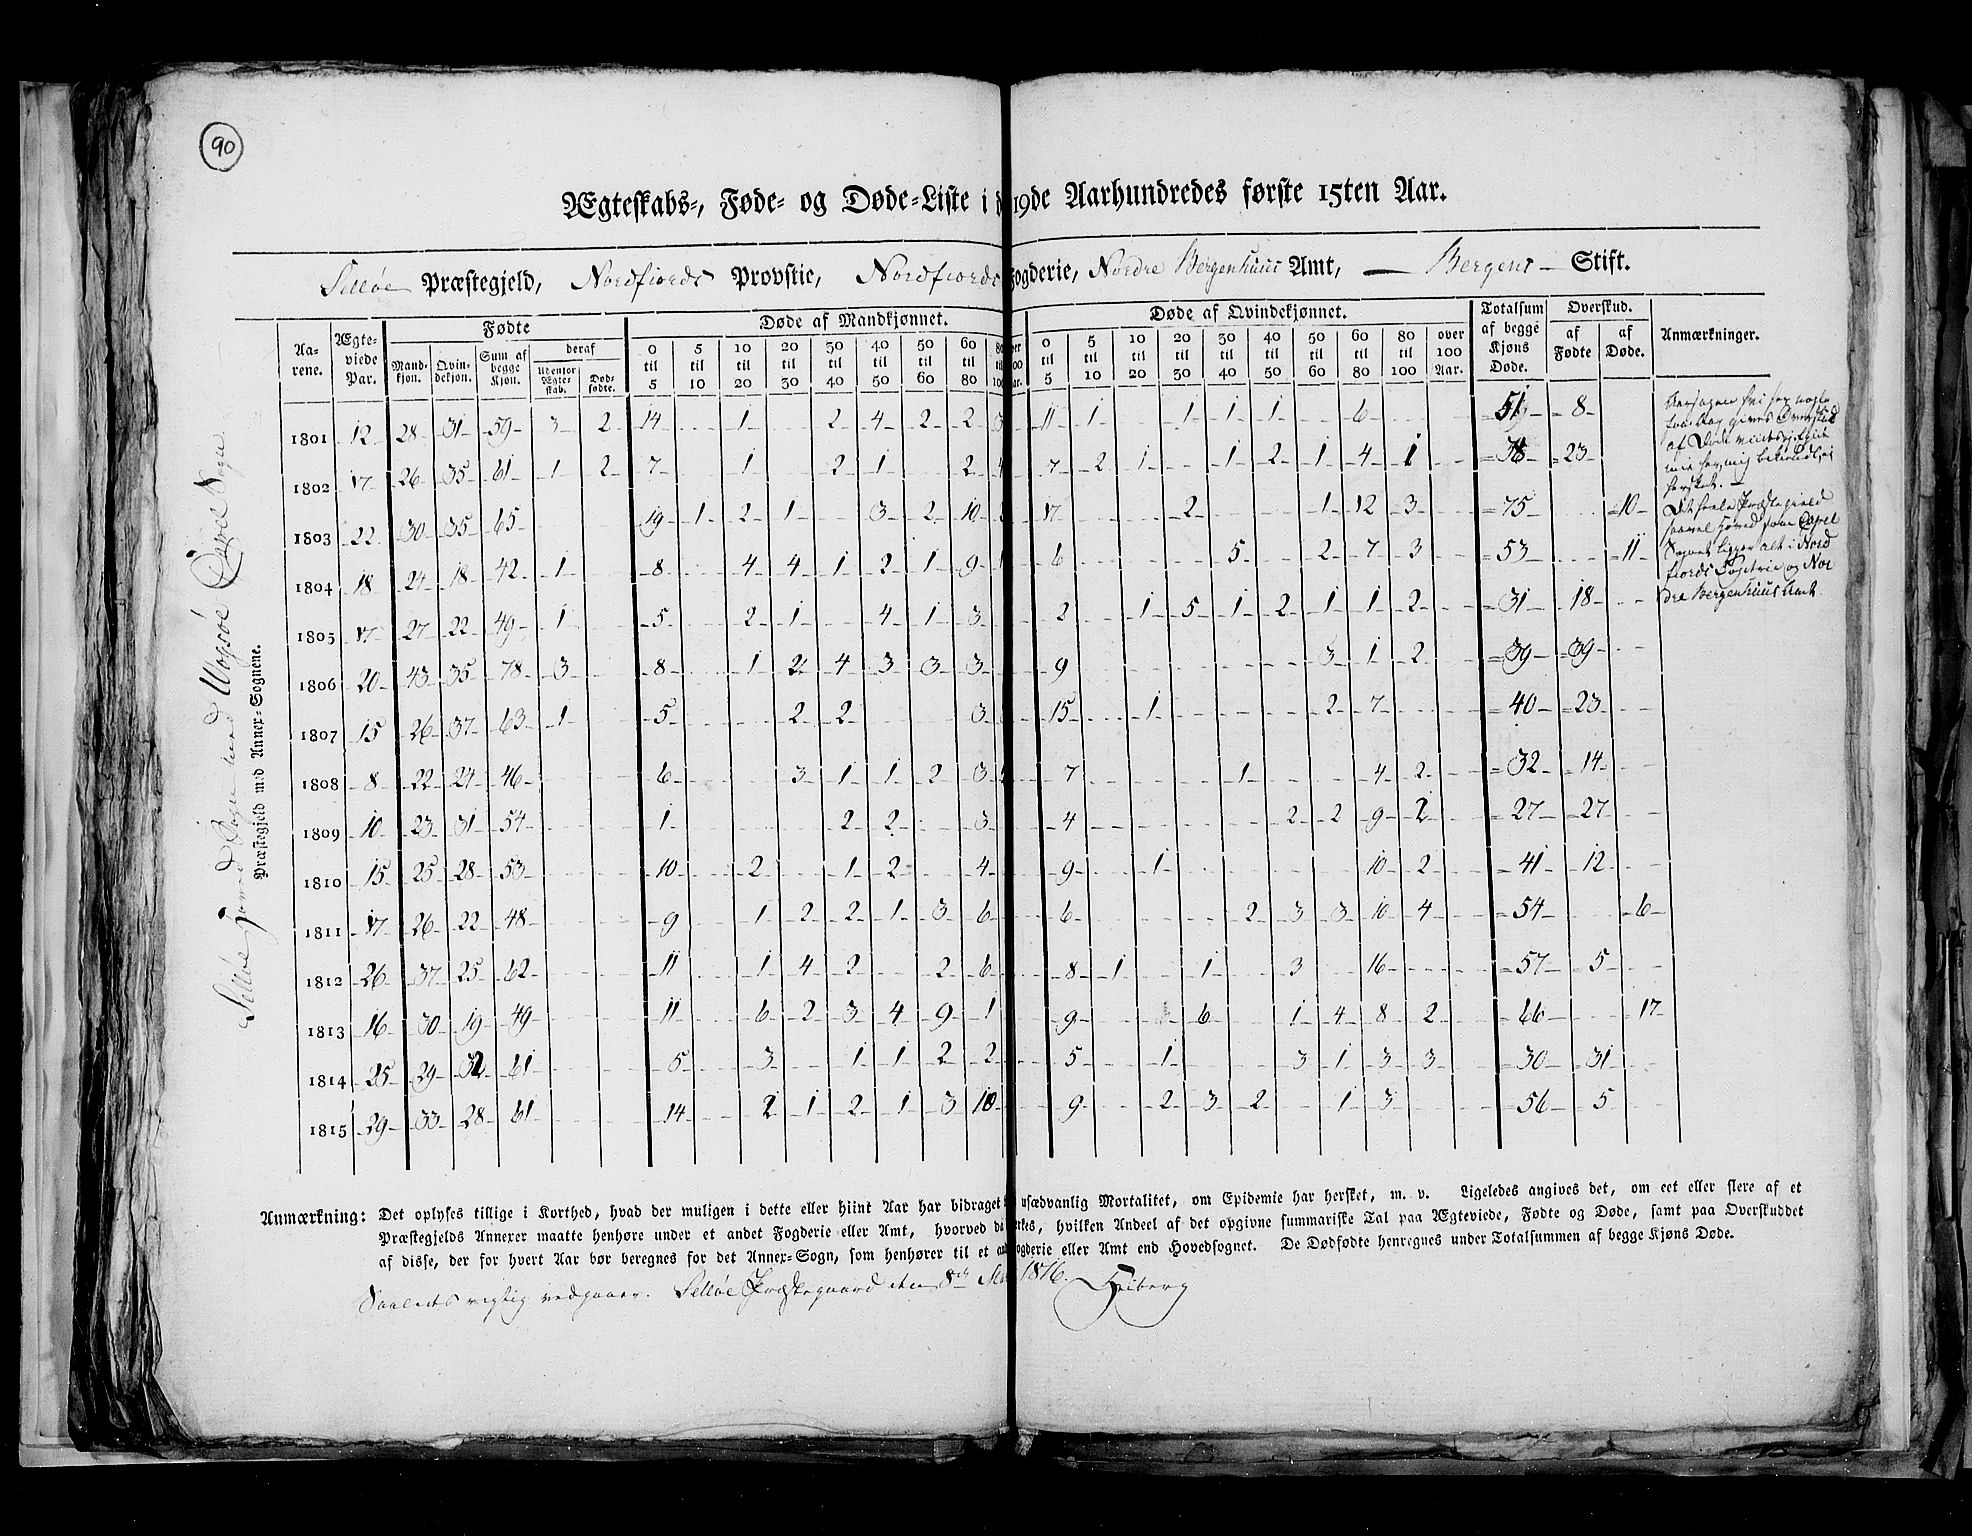 90
Ægteskabs-, Føde- og Døde-Liste i d 19de Aarhundredes første 15ten Aar.
Selløe Præstegjeld, Nordfiords Provstie, Nordfiords Fogderie, Nordre Bergenhuus Amt, — Bergens — Stift.
Selløe Hoved Sogn med Vogsöe Capel Sogn
Præstegjeld med Annex-Sognene.
Aarene. Ægteviede Par. Fødte Døde af Mandkjønnet. Døde af Qvindekjønnet. Totalsum af begge Kjøns Døde. Overskud. Anmærkninger.
Mandkjøn. Qvindekjøn. Sum af begge Kjøn. deraf af Fødte af Døde.
Udenfor Ægtestab. Dødfødte.
0 til 5 5 til 10 10 til 20 20 til 30 30 til 40 40 til 50 50 til 60 60 til 80
0 til 5 5 til 10 10 til 20 20 til 30 30 til 40 40 til 50 50 til 60 60 til 80 80 til 100 over 100 Aar.
1801 12 28 31 59 3 2 14 1 2 4 2 2 11 1 1 1 1 6 51 8
1802 17 26 35 61 1 2 7 1 2 1 2 4 7 2 1 1 2 1 4 1 38 23
1803 22 30 35 65 19 1 2 1 3 2 10 17 2 1 12 3 75 10
1804 18 24 18 42 1 8 4 4 1 2 1 9 1 6 5 2 7 3 53 11
1805 17 27 22 49 1 5 2 1 4 1 3 2 1 5 1 2 1 1 2 31 18
1806 20 43 35 78 3 8 1 2 4 3 3 3 9 3 1 2 39 39
1807 15 26 37 63 1 5 2 2 3 15 1 2 7 40 23
1808 8 22 24 46 6 3 1 1 2 3 7 1 4 2 32 14
1809 10 23 31 54 1 2 2 3 4 2 2 9 2 27 27
1810 15 25 28 53 10 2 1 2 4 9 1 10 2 41 12
1811 17 26 22 48 9 1 2 2 1 3 6 6 2 3 3 10 4 54 6
1812 26 37 25 62 11 1 4 2 2 6 8 1 1 3 16 57 5
1813 16 30 19 49 11 6 2 3 4 9 1 9 6 1 4 8 2 66 17
1814 25 29 32 61 5 3 1 1 2 2 5 1 3 1 3 3 30 31
1815 29 33 28 61 14 2 1 2 1 3 10 9 2 3 2 1 3 56 5
af Døde
Det heele Præstegield
saavel Hoved som Capel
Sognet ligger alt i Nord
fiords Fogderie og Nor
dre Bergenhuus Amt.
Anmærkning: Det oplyses tillige i Korthed, hvad der muligen i dette eller hiint Aar har bidraget usædvanlig Mortalitet, om Epidemie har hersket, m. v. Ligeledes angives det, om eet eller flere af et
Præstegjelds Annexer maatte henhøre under et andet Fogderie eller Amt, hvorved hvilken Andeel af det opgivne summariske Tal paa Ægteviede, Fødte og Døde, samt paa Overskuddet
af disse, der for hvert Aar bør beregnes for det Annex-Sogn, som henhører til et Fogderie eller Amt end Hovedsognet. De Dødfødte henregnes under Totalsummen af begge Kjøns Døde.
Saaledes rigtig vedgaaer. Selløe Præstegaard den 8de 1816. Heiberg